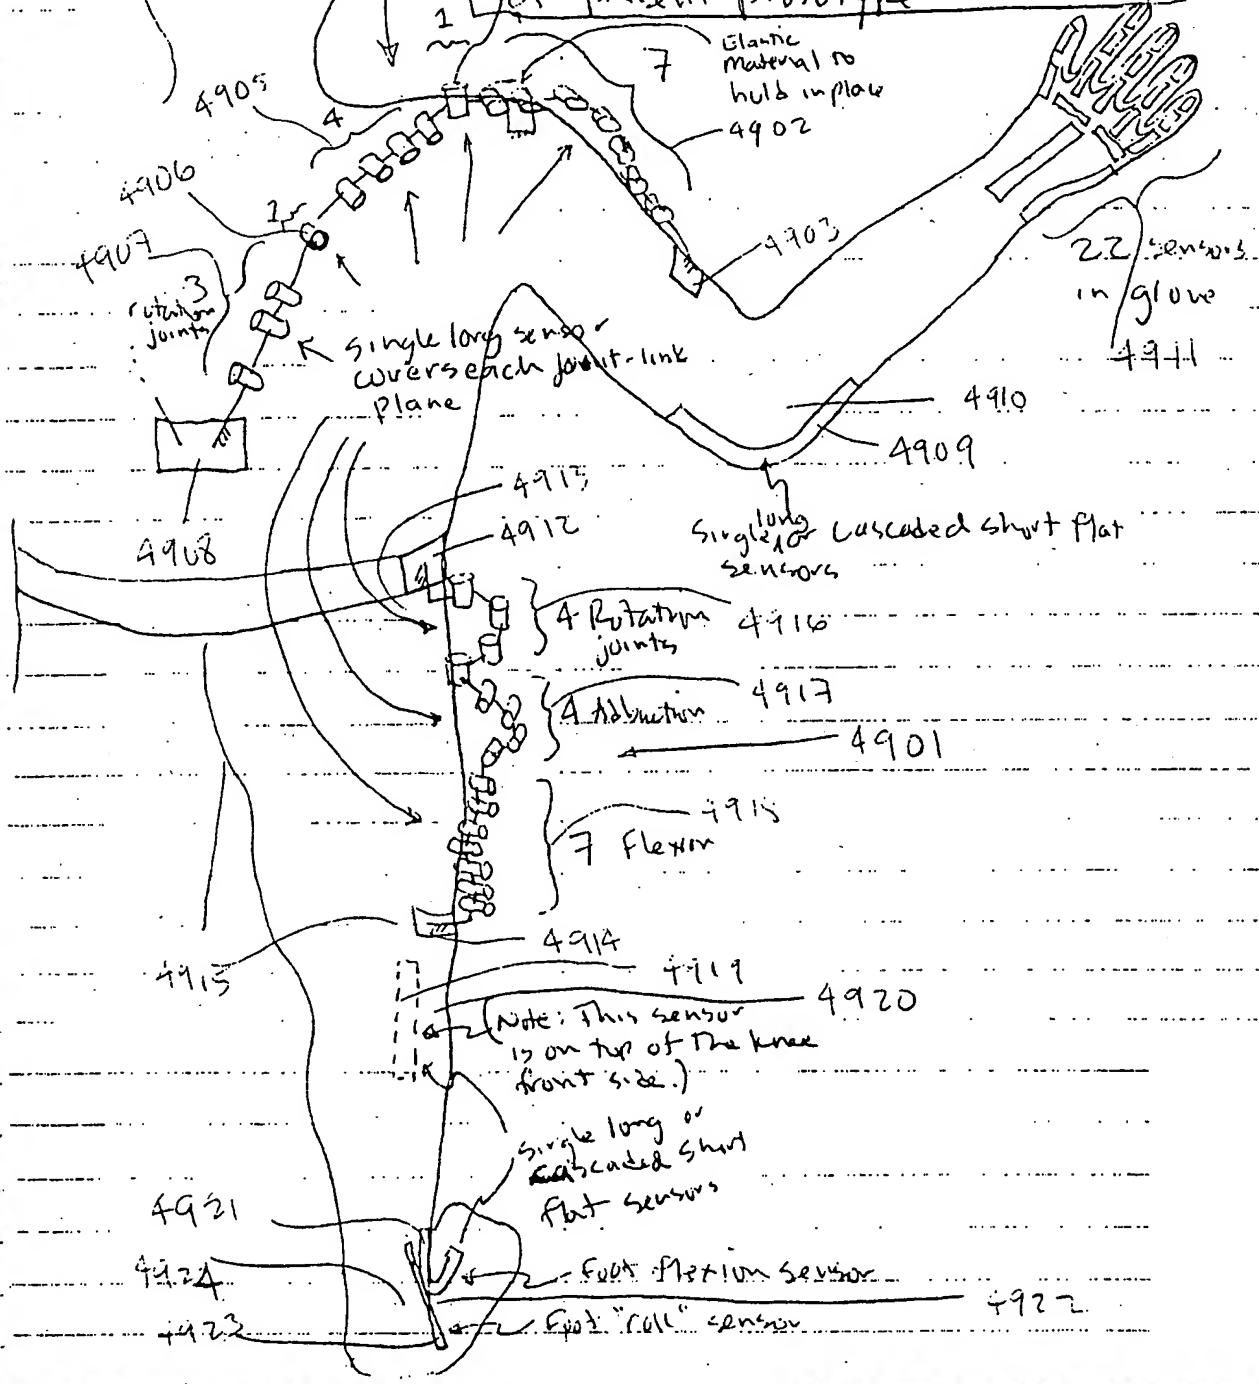 1
7
Elastic
material to
hold in place
4905
4
4902
4906
1
4907
3
rotation
joints
4903
22 sensors
in glove
4911
single long sensor
covers each joint-link
plane
4910
4909
4913
4912
4908
Single long or cascaded short flat
sensors
4 Rotation
joints
4916
4 Abduction
4917
4901
4918
7 Flexion
4914
4915
4919
4920
(Note: This sensor
is on top of the knee
front side.)
single long or
cascaded short
flat sensors
4921
4924
Foot flexion sensor
4922
4923
Foot "roll" sensor